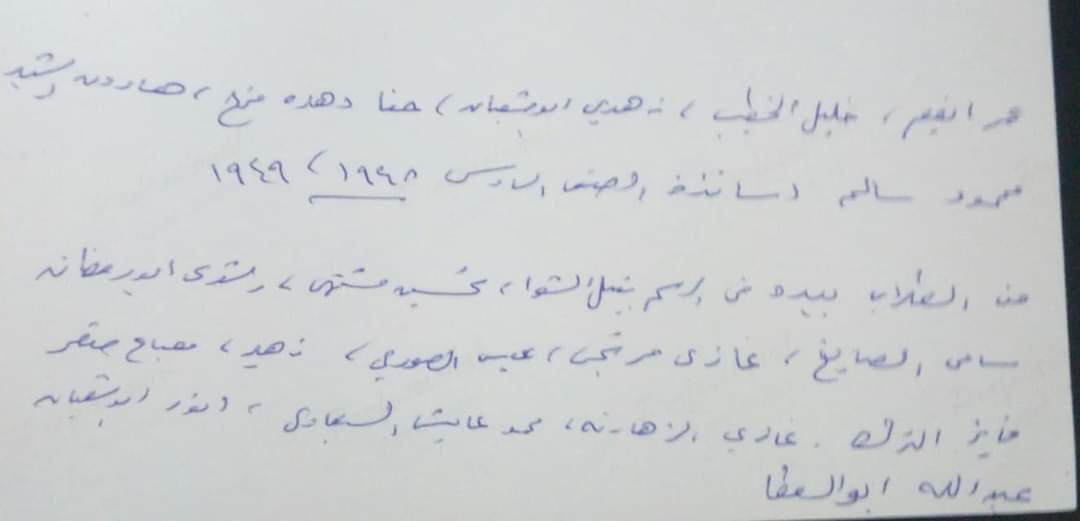 عمر انعيم ، خليل الخطيب ، زهدي ابو شعبان ، حنا دهده فرح ، هارون رشيد
محمود سالم اساتذة الصف السادس ١٩٤٨ ، ١٩٤٩
من الطلاب يبدو في الرسم نبيل الشوا ، تحسين مشتهى ، رشدي ابو رمضان
سامي الصايغ ، غازي مرتجى ، عيسى الصوري ، زهير ، مصباح صقر
فايز الترك . غازي الزهارنه ، محمد عايش السبعاوي ، انور ابو شعبان
عبد الله ابو العطا